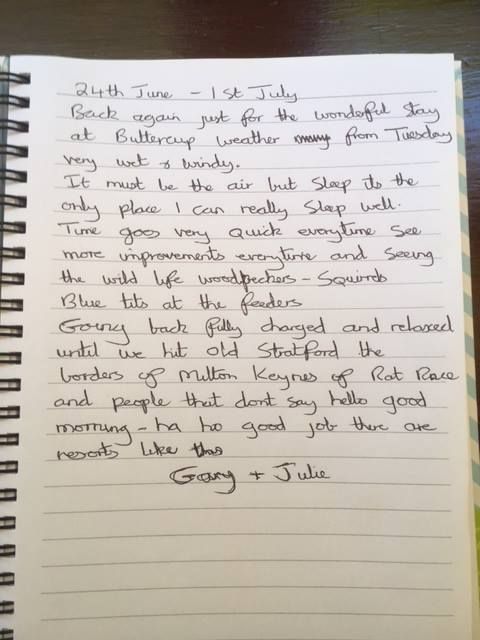 24th June - 1st July
Back again just for the wonderful stay
at Buttercup weather from Tuesday
very wet & windy.
It must be the air but sleep its the
only place I can really sleep well.
Time goes very quick everytime see
more improvements everytime and seeing
the wild life woodpeckers - Squirrels
Blue tits at the feeders
Going back fully charged and relaxed
until we hit Old Stratford the
borders of Milton Keynes of Rat Race
and people that dont say hello good
morning - ha ha good job there are
resorts like this
Gary + Julie